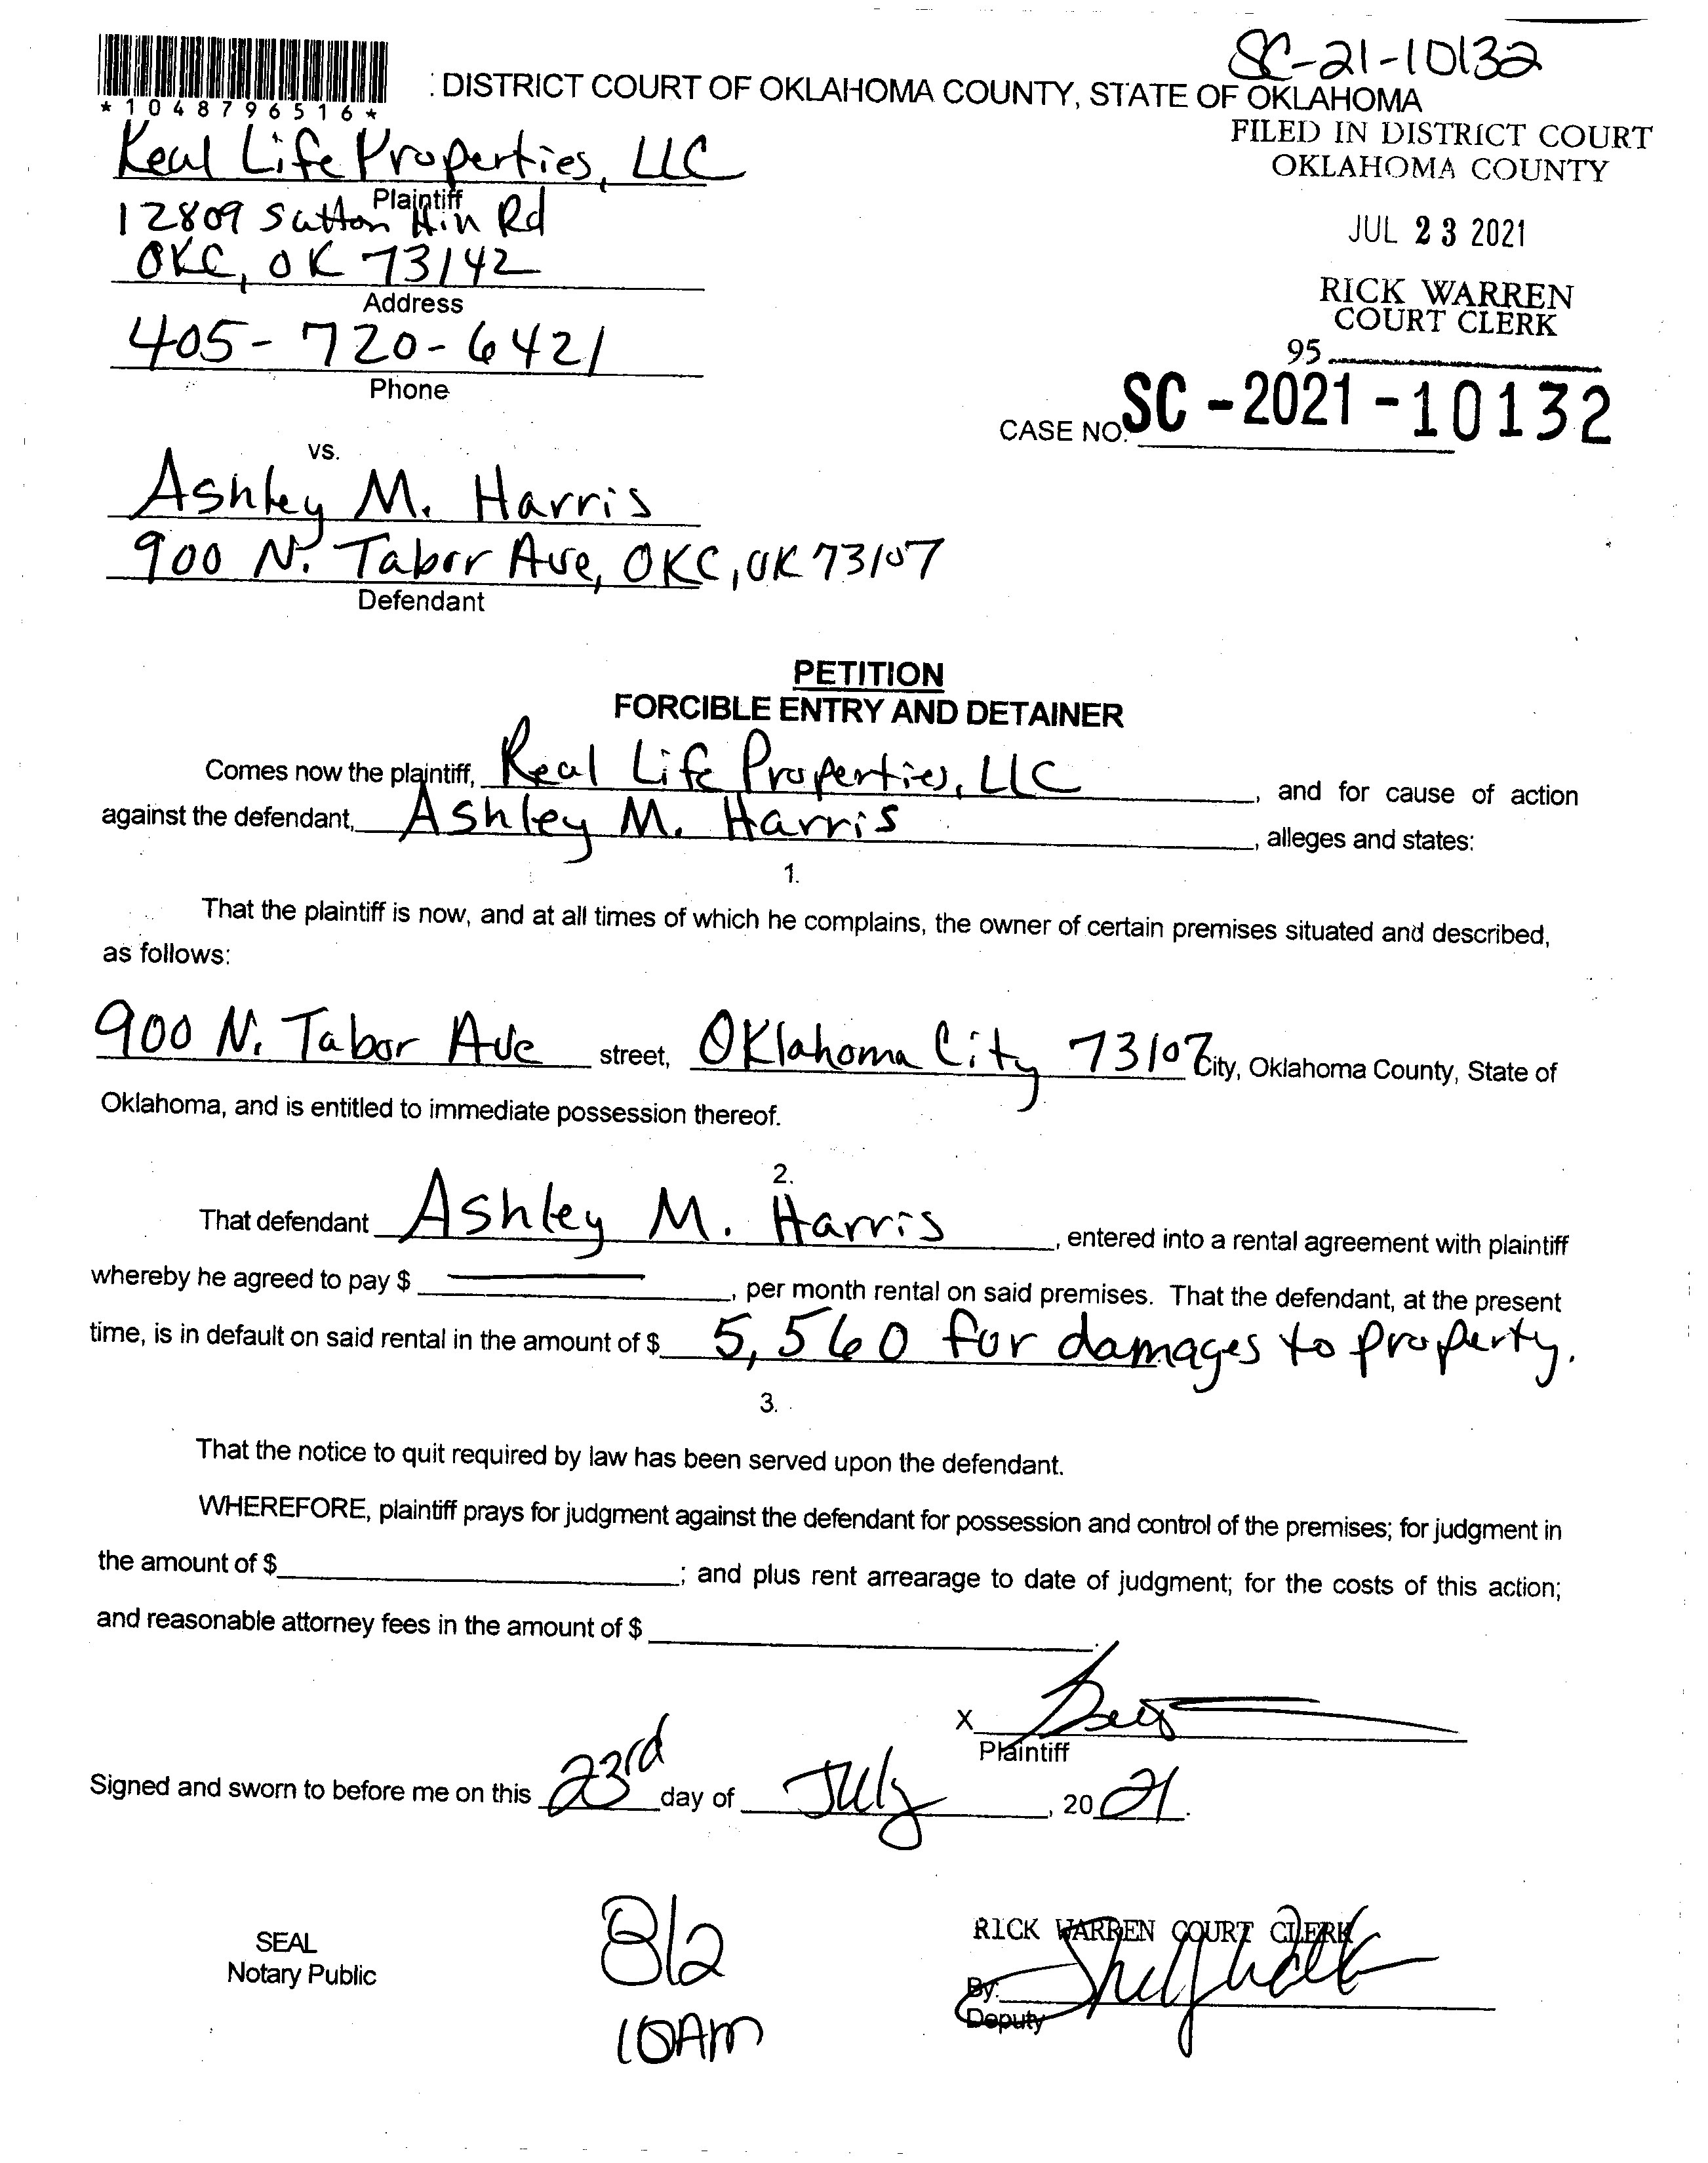 SC-21-10132
: DISTRICT COURT OF OKLAHOMA COUNTY, STATE OF OKLAHOMA
*1048796516*
FILED IN DISTRICT COURT
OKLAHOMA COUNTY
Real Life Properties, LLC
Plaintiff
12809 Sutton Hill Rd
JUL 23 2021
OKC, OK 73142
Address
RICK WARREN
COURT CLERK
405-720-6421
Phone
95
CASE NO. SC-2021-10132
vs.
Ashley M. Harris
900 N. Tabor Ave, OKC, OK 73107
Defendant
PETITION
FORCIBLE ENTRY AND DETAINER
Comes now the plaintiff, Real Life Properties, LLC, and for cause of action
against the defendant, Ashley M. Harris, alleges and states:
1.
That the plaintiff is now, and at all times of which he complains, the owner of certain premises situated and described,
as follows:
900 N. Tabor Ave street, Oklahoma City 73107 City, Oklahoma County, State of
Oklahoma, and is entitled to immediate possession thereof.
2.
That defendant Ashley M. Harris, entered into a rental agreement with plaintiff
whereby he agreed to pay $ —, per month rental on said premises. That the defendant, at the present
time, is in default on said rental in the amount of $ 5,560 for damages to property.
3.
That the notice to quit required by law has been served upon the defendant.
WHEREFORE, plaintiff prays for judgment against the defendant for possession and control of the premises; for judgment in
the amount of $; and plus rent arrearage to date of judgment; for the costs of this action;
and reasonable attorney fees in the amount of $
X
Plaintiff
Signed and sworn to before me on this 23rd day of July, 2021.
SEAL
Notary Public
8/2
10AM
RICK WARREN COURT CLERK
By:
Deputy